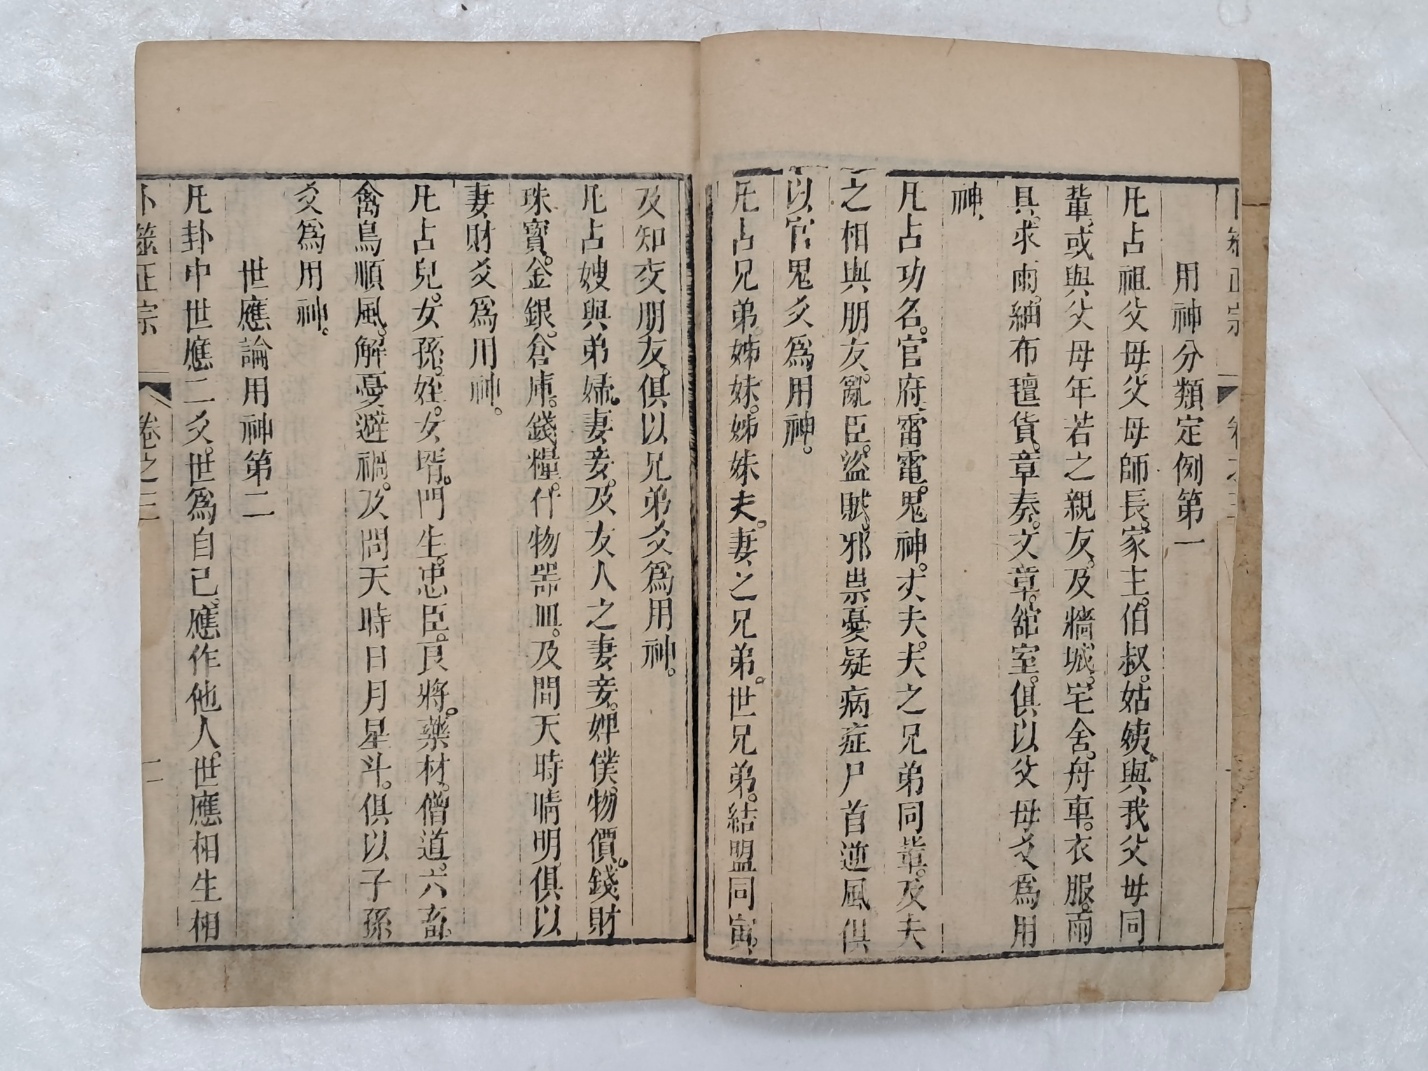 用神分類定例第一
凡占祖父母父母師長。家主。伯叔。姑姨。與我父母同
輩。或與父母年若之親友。及牆城。宅舍。舟車。衣服。雨
具。求雨。紬布氊貨。章奏。文章。舘室。俱以父母爻爲用
神。
凡占功名。官府。雷電。鬼神。丈夫。夫之兄弟同輩。及夫
之相與朋友。亂臣。盜賊。邪祟憂疑病症尸首逆風俱
以官鬼爻爲用神。
凡占兄弟。姊妹。姊妹夫。妻之兄弟。世兄弟。結盟同寅。
及知交朋友。俱以兄弟爻爲用神。
凡占嫂與弟婦。妻妾。及友人之妻妾。婢僕。物價。錢財
珠寶。金銀。倉庫。錢糧。什物器皿。及問天時晴明。俱以
妻財爻爲用神。
凡占兒。女。孫。姪。女壻。門生。忠臣。良將。藥材。僧道。六畜。
禽鳥順風。解憂避禍。及問天時日月星斗。俱以子孫
爻爲用神。
世應論用神第二
凡卦中世應二爻。世爲自己。應作他人。世應相生相
卜筮正宗 卷之三 二